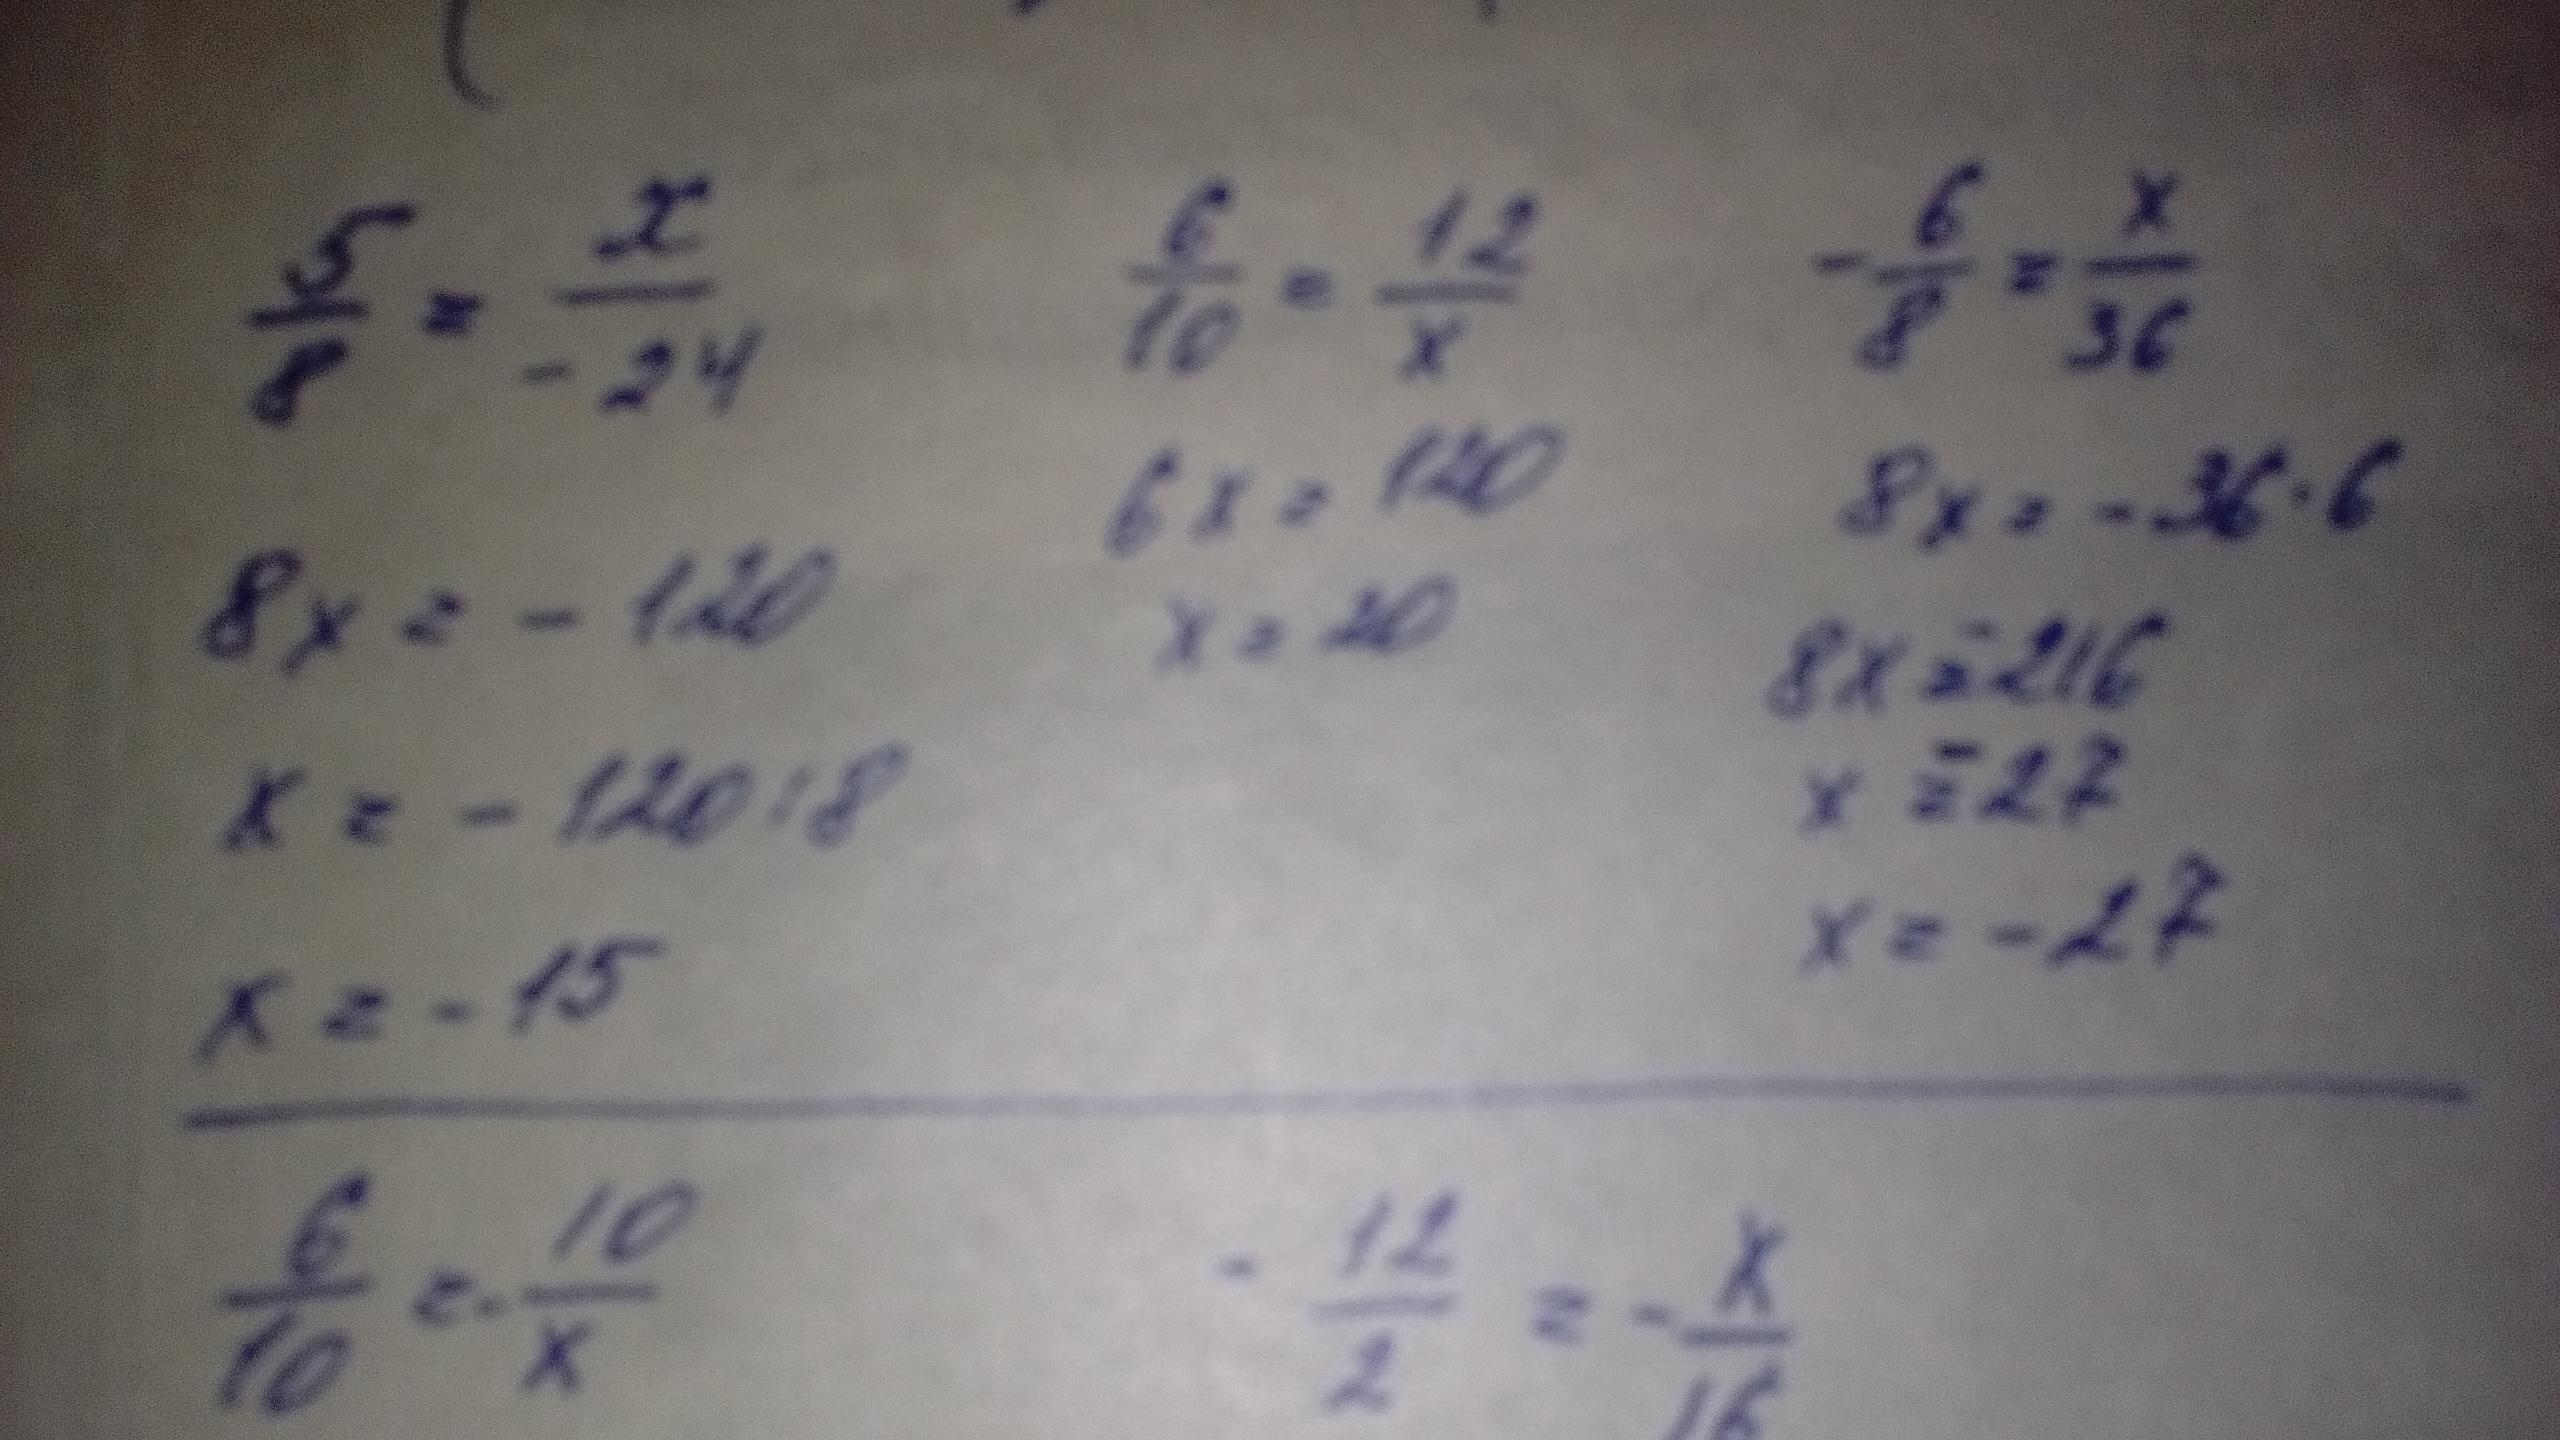 5/8 = x/-24
8x = - 120
x = - 120 : 8
x = - 15
6/10 = 12/x
6x = 120
x = 20
- 6/8 = x/36
8x = - 36 · 6
8x = -216
x = -27
x = - 27
6/10 = - 10/x
- 12/2 = - x/16